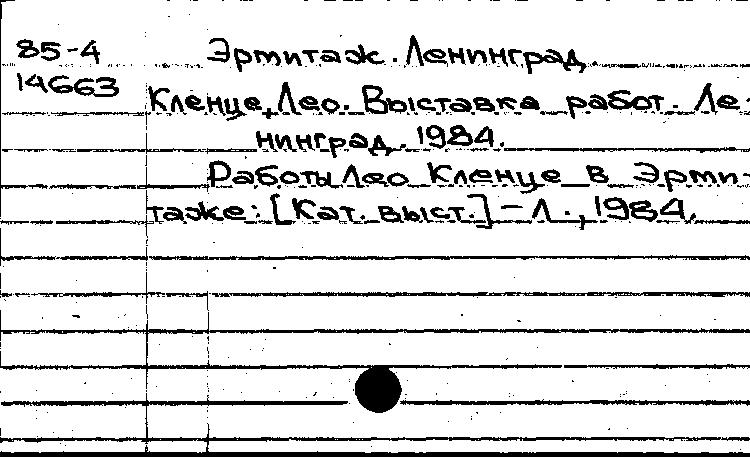 85-4 Эрмитаж. Ленинград.
14663 Кленце, Лео. Выставка работ. Ле-
нинград. 1984.
Работы Лео Кленце в Эрми-
таже: [Кат. выст.] – Л., 1984.